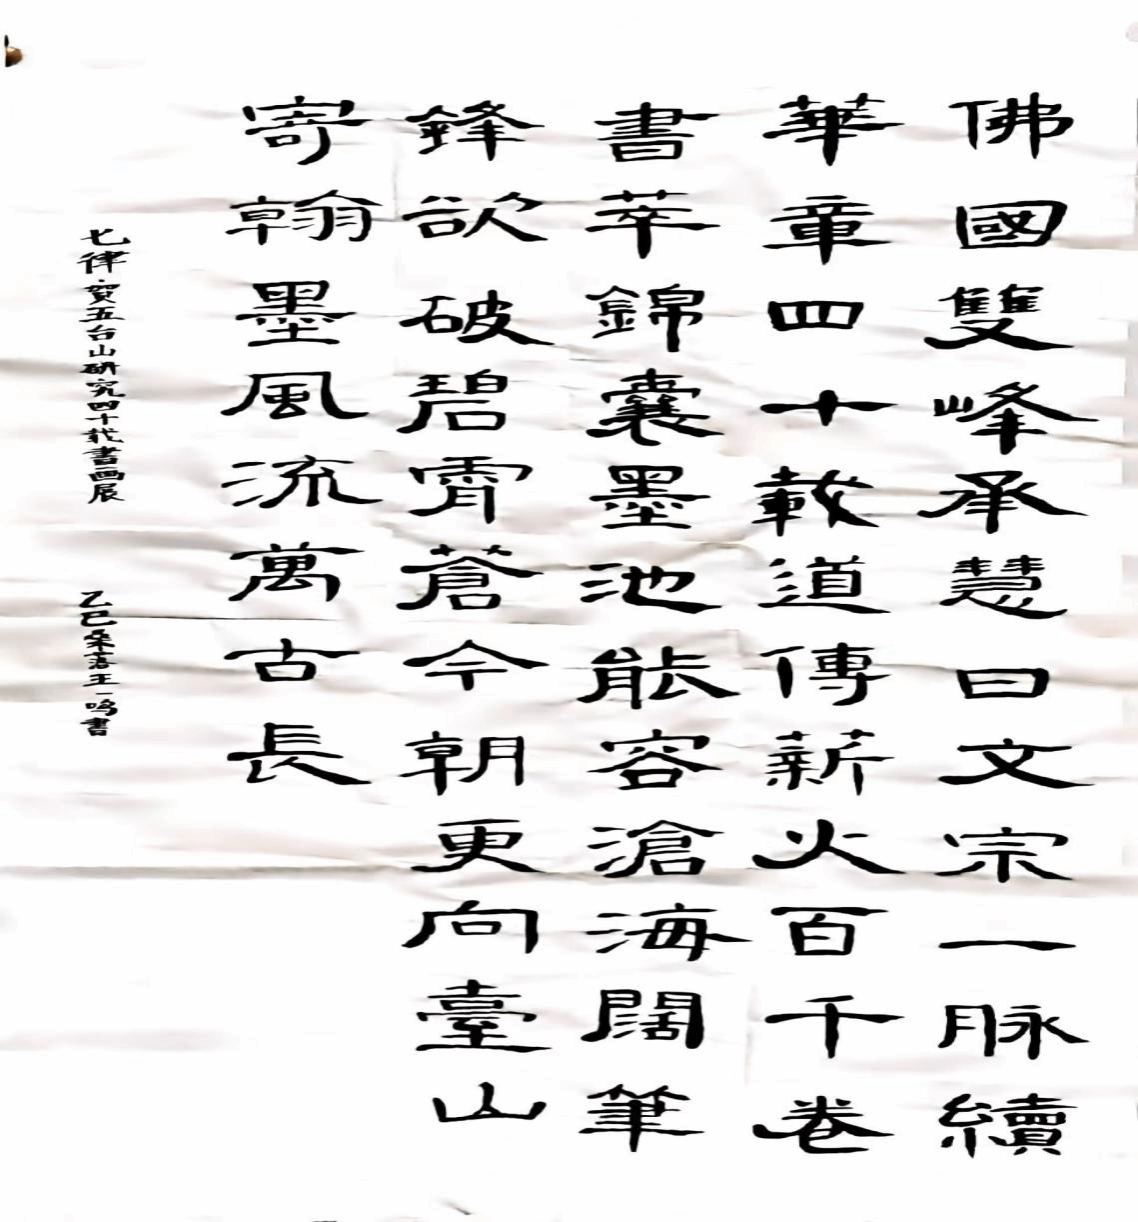 佛國雙峰承慧曰文宗一脉續
華章四十載道傳薪火百千卷
書萃錦囊墨池能容滄海闊筆
鋒欲破碧霄蒼今朝更向臺山
寄翰墨風流萬古長
七律·贺五台山研究四十載書画展
乙巳桑落王一鸣書